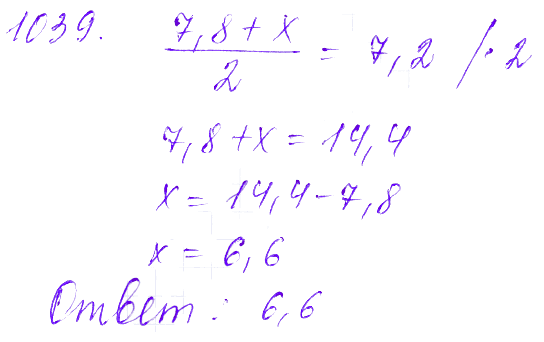 1039. (7,8 + x)/2 = 7,2 /· 2
7,8 + x = 14,4
x = 14,4 - 7,8
x = 6,6
Ответ: 6,6